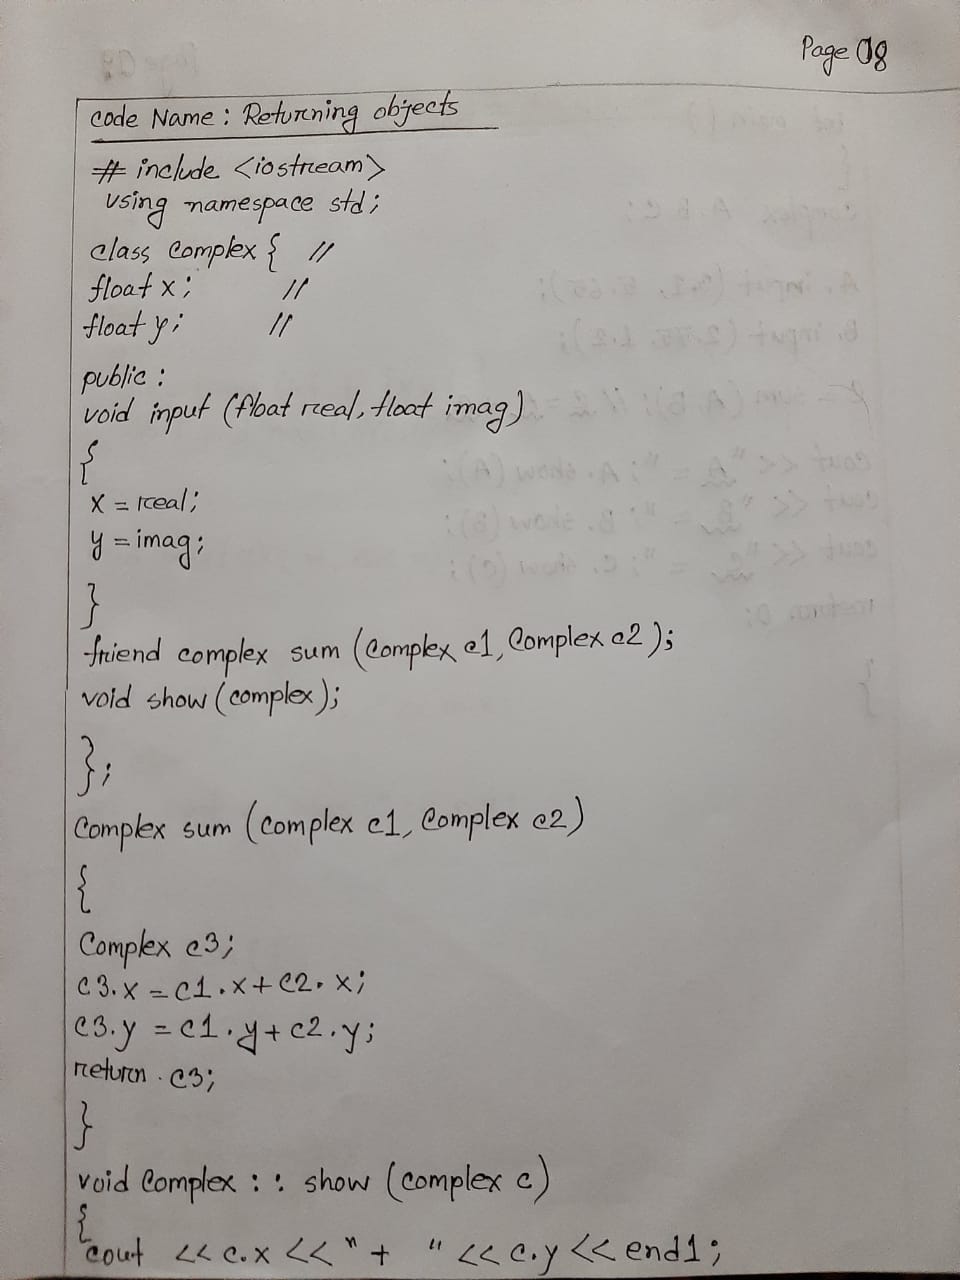 Page 08
Code Name : Returning objects
# include <iostream>
using namespace std;
class Complex { //
float x; //
float y; //
public :
void input (float real, float imag)
{
x = real;
y = imag;
}
friend complex sum (Complex c1, Complex c2);
void show (complex);
};
Complex sum (complex c1, Complex c2)
{
Complex c3;
c3.x = c1.x + c2.x;
c3.y = c1.y + c2.y;
return c3;
}
void Complex : : show (complex c)
{
cout << c.x << " + " << c.y << end1;